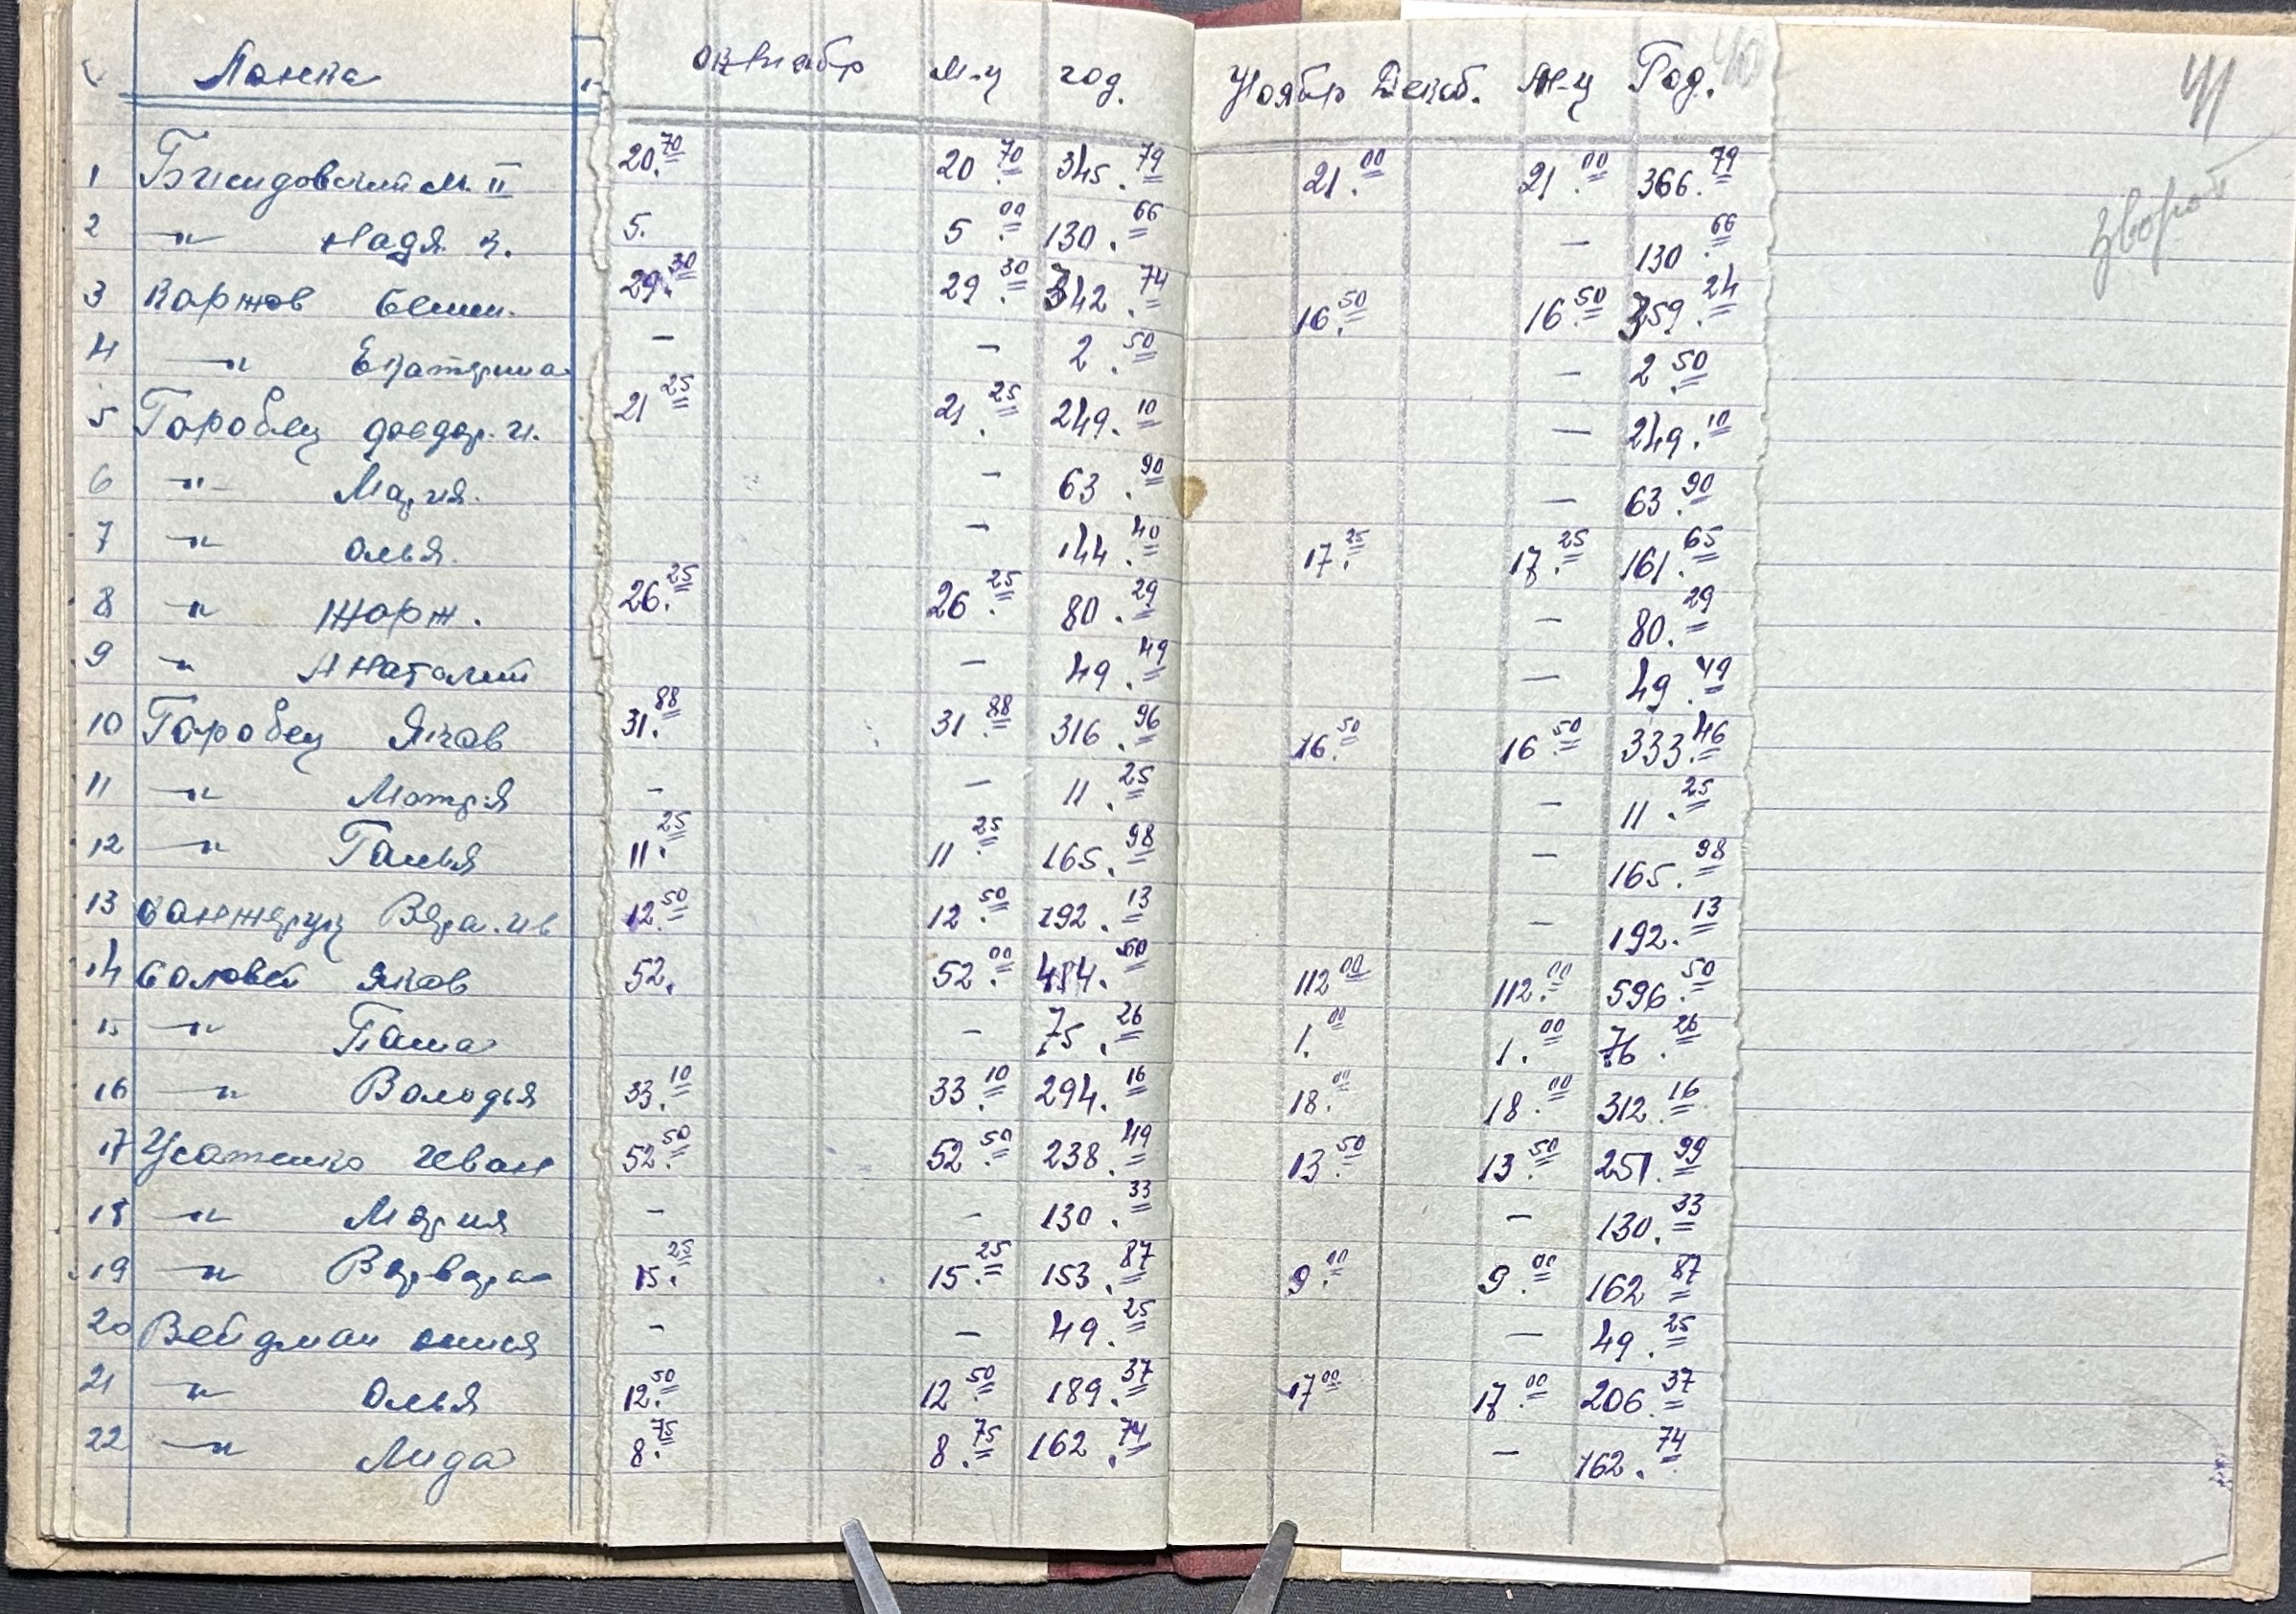 Ланка октябр м-ц год. Ноябр Декаб. м-ц Год. 40 41
зворот
1 М. II 20.70 20.70 345.79 21.00 21.00 366.79
2 –"– Надя 5. 5.00 130.66 – 130.66
3 Коржов 29.30 29.30 342.74 16.50 16.50 359.24
4 –"– Екатерина – – 2.50 – 2.50
5 Горобец 21 25 21.25 249.10 – 249.10
6 –"– Мария. – 63.90 – 63.90
7 –"– Олья. – 144.40 17.25 17.25 161.65
8 –"– Жорж. 26.25 26.25 80.29 – 80.29
9 –"– Анатолий – 49.49 – 49.49
10 Горобец Яков 31.88 31.88 316.96 16.50 16.50 333.46
11 –"– Мотря – – 11.25 – 11.25
12 –"– Ганья 11.25 11.25 165.98 – 165.98
13 Вера. ив 12.50 12.50 192.13 – 192.13
14 Соловей Яков 52. 52.00 484.50 112 00 112.00 596.50
15 –"– Паша – 75.26 1.00 1.00 76.26
16 –"– Володья 33.10 33.10 294.16 18.00 18.00 312.16
17 Усатенко Иван 52.50 52.50 238.49 13.50 13.50 251.99
18 –"– Мария – – 130.33 – 130.33
19 –"– Варвара 15.25 15.25 153.87 9.00 9.00 162 87
20 Вейдман – – 49.25 – 49.25
21 –"– Олья 12.50 12.50 189.37 17 00 17.00 206.37
22 –"– Лида 8.75 8.75 162.74 – 162.74